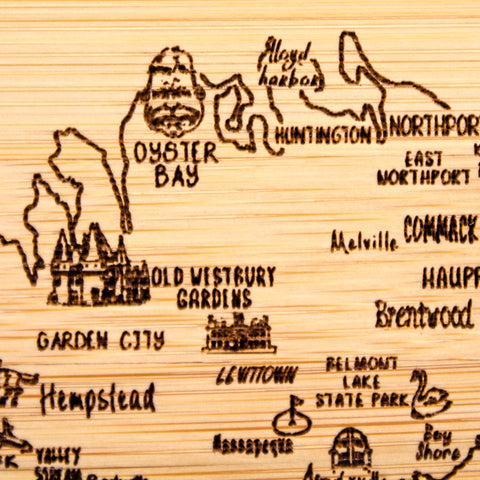 Lloyd
harbor
HUNTINGTON
NORTHPORT
OYSTER
BAY
EAST
NORTHPORT
COMMACK
Melville
OLD WESTBURY
GARDENS
HAUPP
Brentwood
GARDEN CITY
LEVITTOWN
BELMONT
LAKE
STATE PARK
Hempstead
Massapequa
Bay
Shore
VALLEY
STREAM